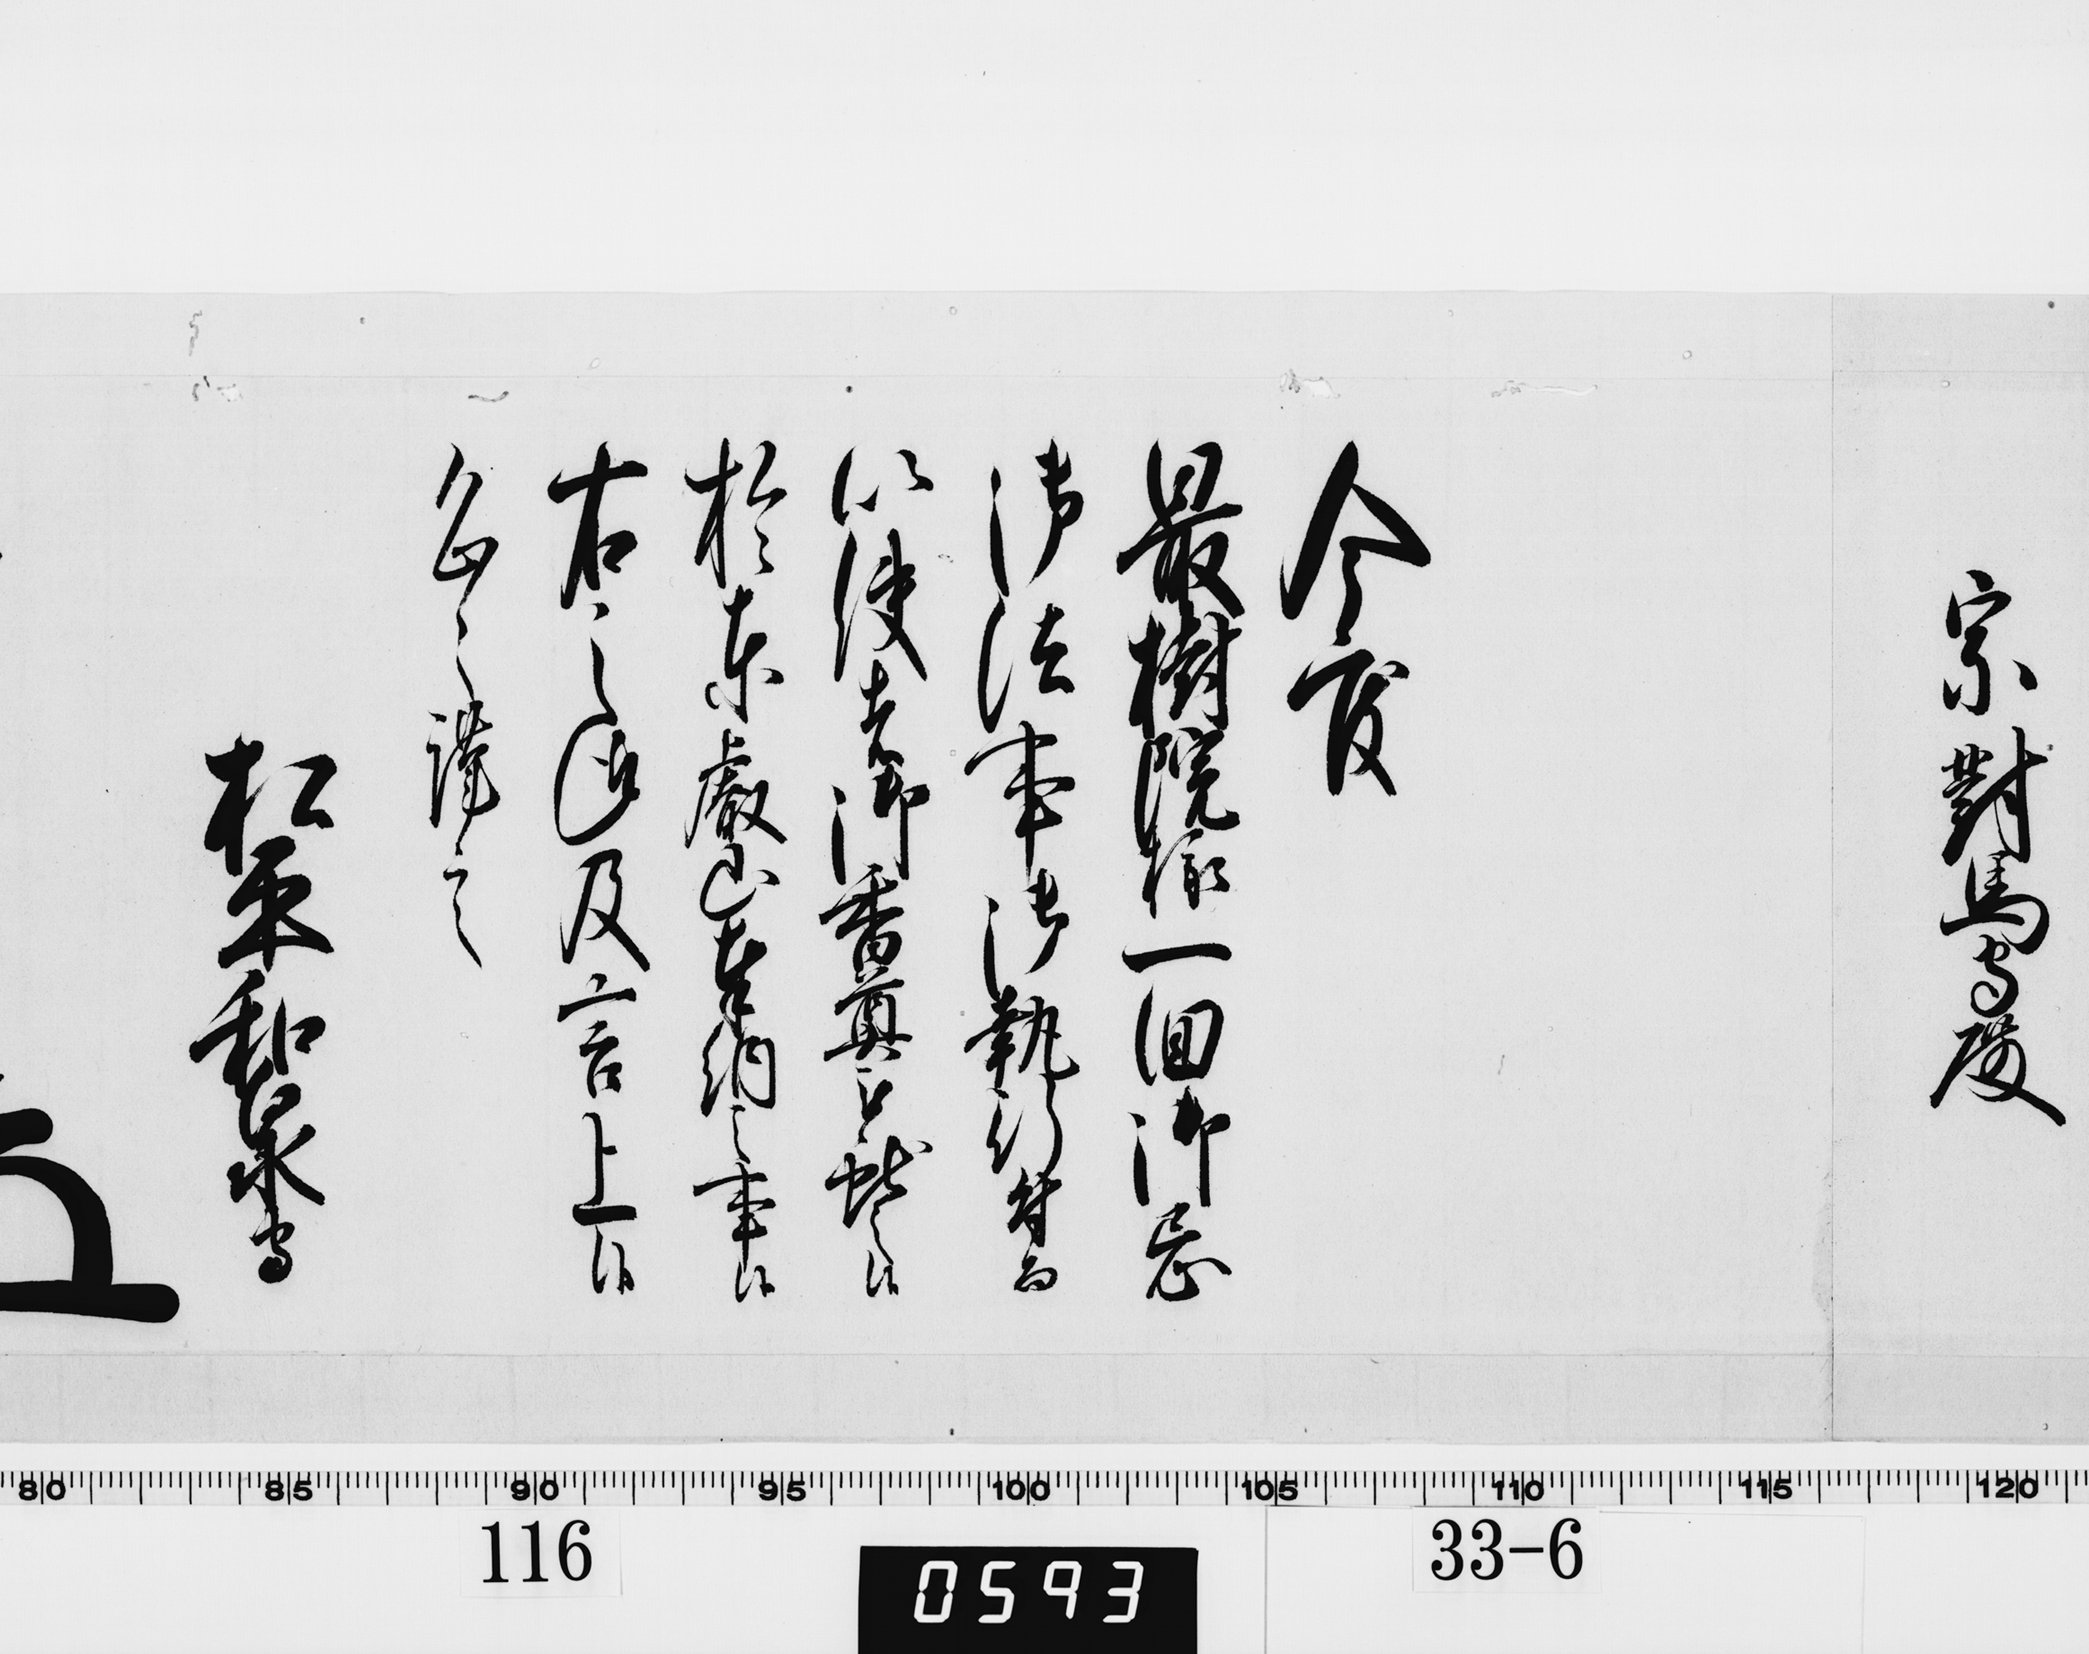 宗對馬守殿
今度
最樹院様一回御忌
御法事御執行付而
以使者御香奠被献之候
於東叡山奉納之事候
右之趣及言上候
恐々謹言
松平和泉守
80 85 90 95 100 105 110 115 120
116
33-6
0593